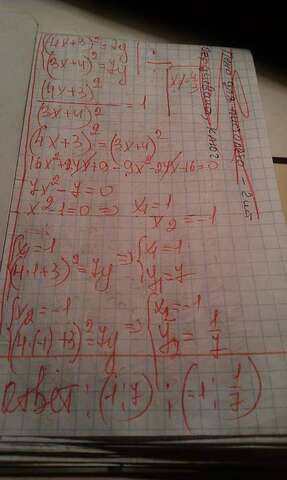 (4x+3)²=7y
(3x+4)²=7y
(4x+3)² / (3x+4)² = 1
(4x+3)²=(3x+4)²
16x²+24x+9-9x²-24x-16=0
7x²-7=0
x²-1=0 => x₁=1
x₂=-1
x₁=1
(4·1+3)²=7y => x₁=1
y₁=7
x₂=-1
(4·(-1)+3)²=7y => x₂=-1
y₂=1/7
Ответ: (1;7); (-1; 1/7)